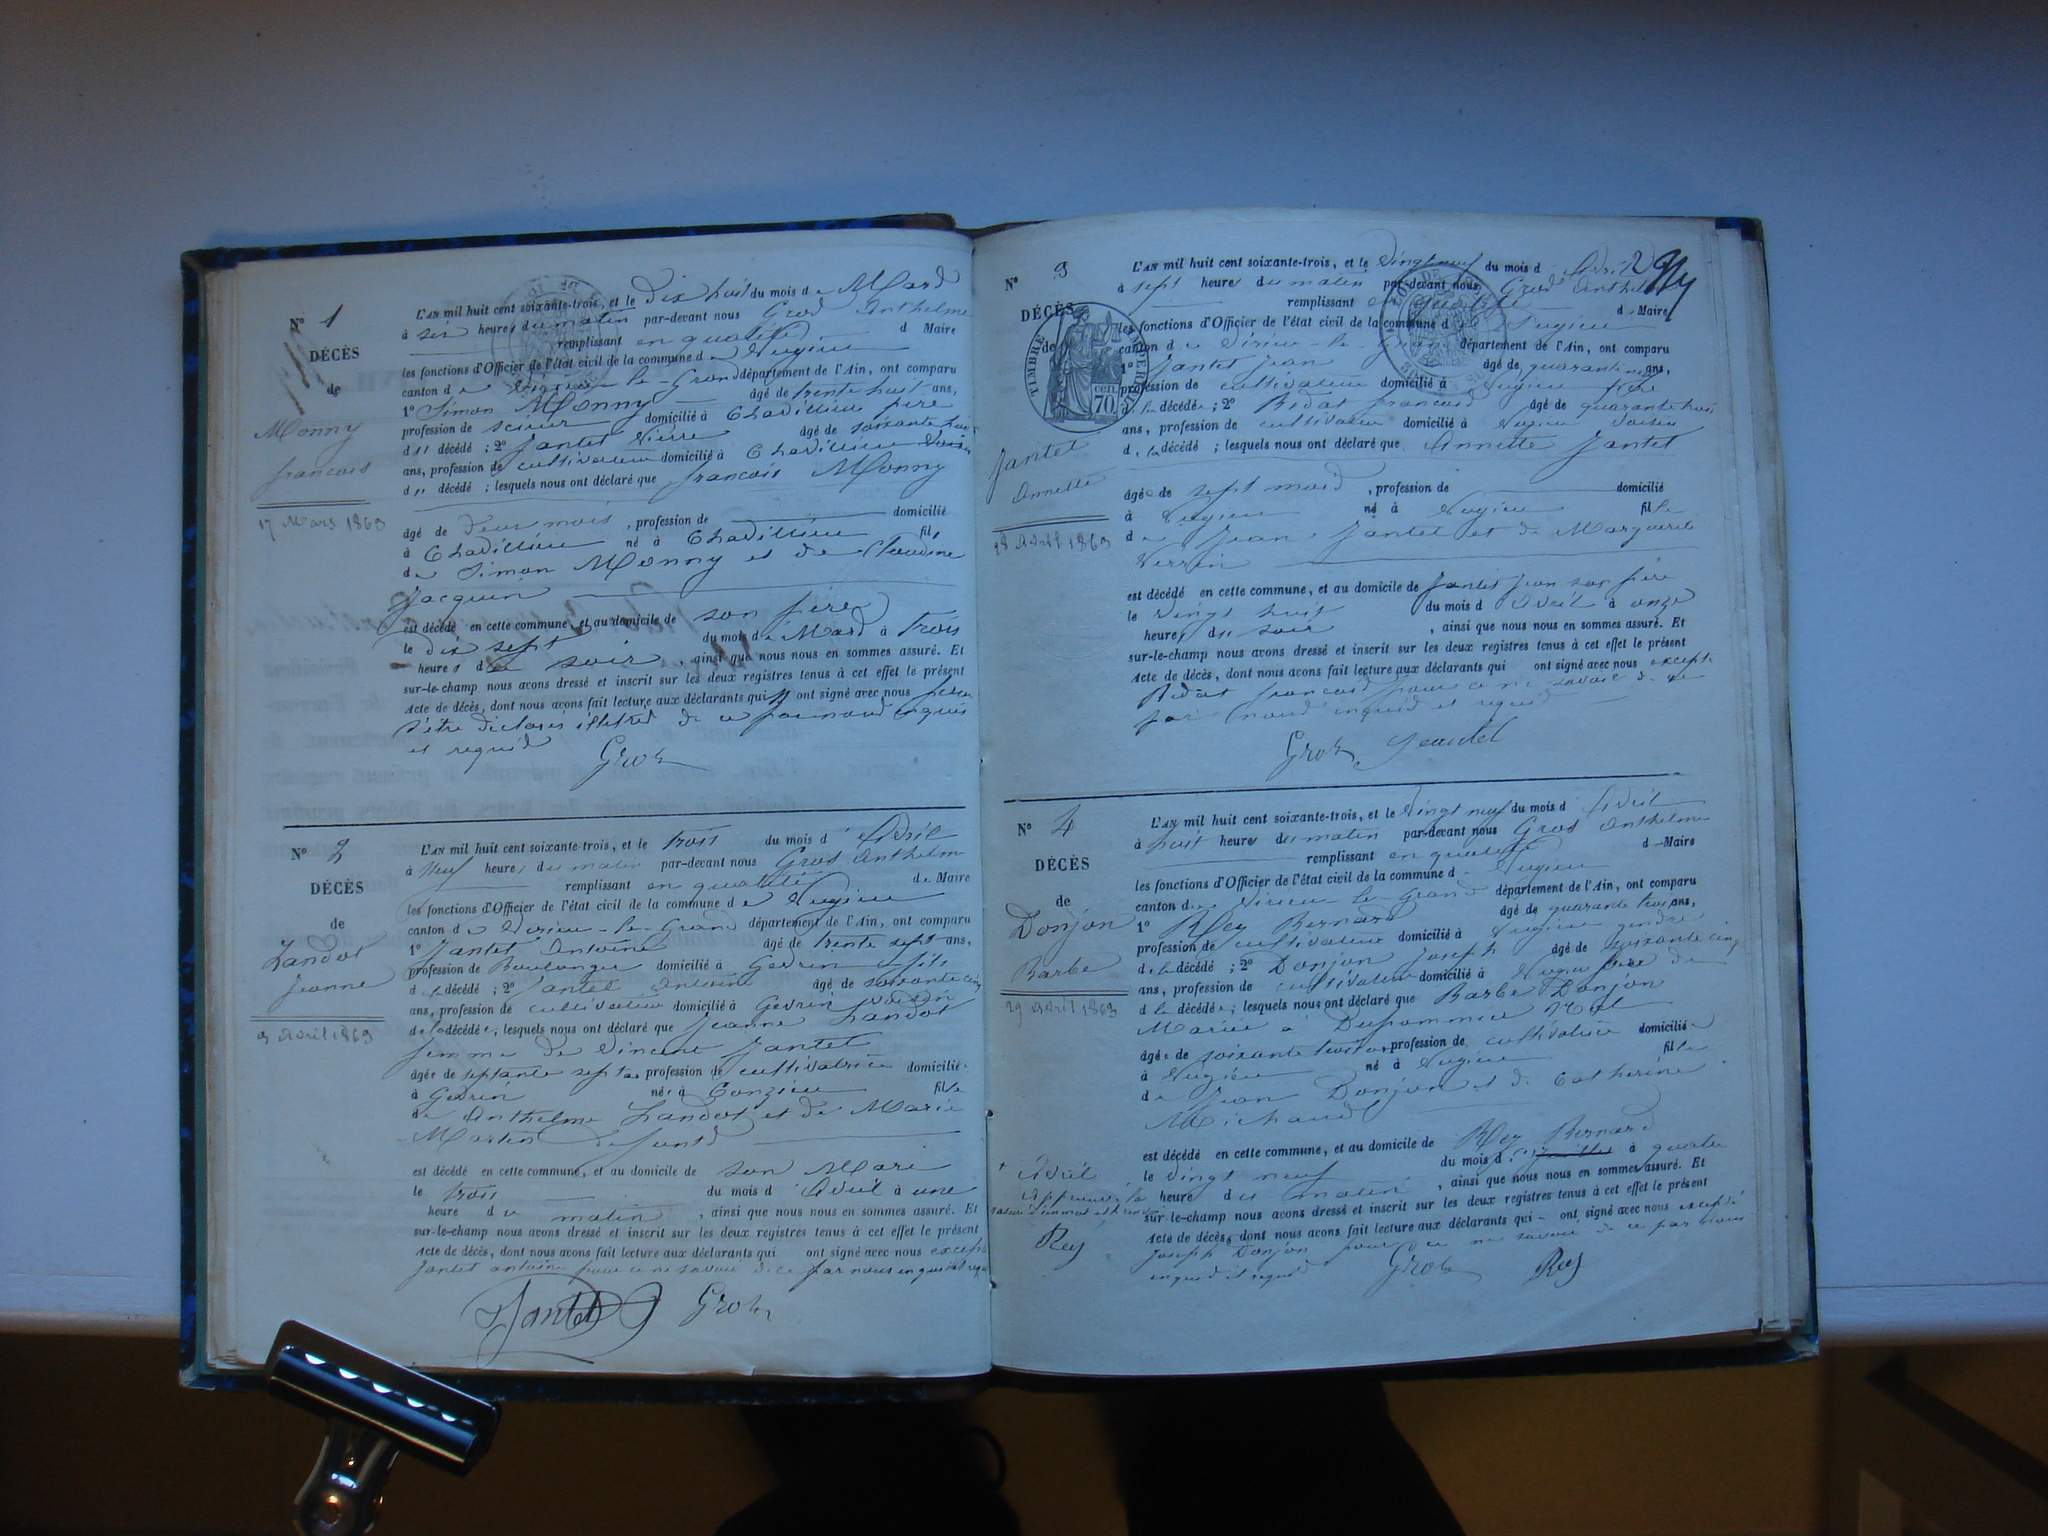 N° 1
DÉCÈS
de
Monny
francois
17 Mars 1863
L'AN mil huit cent soixante-trois, et le Dix huit du mois de Mard
à six heures du matin par-devant nous Grod Anthelme
remplissant en qualité d Maire
les fonctions d'Officier de l'état civil de la commune de Vugieu
canton de Virieu-le-Grand département de l'Ain, ont comparu
1° Simon Monny âgé de trente huit ans,
profession de scieur domicilié à Chavillieu père
du décédé ; 2° Jantet Pierre âgé de soixante huit
ans, profession de cultivateur domicilié à Chavillieu Voisin
du décédé ; lesquels nous ont déclaré que francois Monny
âgé de Deux mois , profession de domicilié
à Chavillieu né à Chavillieu fils
de Simon Monny et de Claudine
Jacquin
est décédé en cette commune, et au domicile de son père
le dix sept du mois de Mard à trois
heures du soir , ainsi que nous nous en sommes assuré. Et
sur-le-champ nous avons dressé et inscrit sur les deux registres tenus à cet effet le présent
Acte de décès, dont nous avons fait lecture aux déclarants qui ont signé avec nous
s'être déclarés illettred de ce par noud enquis
et requid
Grod
N° 2
DÉCÈS
de
Landot
Jeanne
3 Avril 1863
L'AN mil huit cent soixante-trois, et le trois du mois d Avril
à Neuf heures du matin par-devant nous Grod Anthelme
remplissant en qualité de Maire
les fonctions d'Officier de l'état civil de la commune de Vugieu
canton de Virieu-le-Grand département de l'Ain, ont comparu
1° Jantet Antoine âgé de trente sept ans,
profession de Boulanger domicilié à Gevrin fils
d la décédé ; 2° Jantet Antoine âgé de soixante cinq
ans, profession de cultivateur domicilié à Gevrin Voisin
de la décédée ; lesquels nous ont déclaré que Jeanne Landot
femme de Vincent Jantet
âgée de septante sept ans profession de cultivatrice domiciliée
à Gevrin née à Conzieu fille
de Anthelme Landot et de Marie
Martin defuntd
est décédé en cette commune, et au domicile de son Mari
le trois du mois d Avril à une
heure du matin , ainsi que nous nous en sommes assuré. Et
sur-le-champ nous avons dressé et inscrit sur les deux registres tenus à cet effet le présent
Acte de décès, dont nous avons fait lecture aux déclarants qui ont signé avec nous excepté
Jantet antoine pour ce ne savoir de ce par nous enquis et requis
Jantet Grod
N° 3
DÉCÈS
de
TIMBRE IMPÉRIAL
70 cen.
Jantet
Annette
28 Avril 1863
L'AN mil huit cent soixante-trois, et le Vingt neuf du mois d Avril 2
à sept heures du matin par-devant nous Grod Anthelme
remplissant en qualité d Maire
les fonctions d'Officier de l'état civil de la commune de Vugieu
canton de Virieu-le-Grand département de l'Ain, ont comparu
1° Jantet Jean âgé de quarante neuf ans,
profession de cultivateur domicilié à Vugieu père
d la décédée ; 2° Bidat francois âgé de quarante huit
ans, profession de cultivateur domicilié à Vugieu Voisin
de la décédé ; lesquels nous ont déclaré que Annette Jantet
âgée de sept mois , profession de domicilié
à Vugieu né à Vugieu fille
de Jean Jantet et de Marguerite
Perrin
est décédé en cette commune, et au domicile de Jantet Jean son père
le vingt huit du mois d Avril à onze
heures du soir , ainsi que nous nous en sommes assuré. Et
sur-le-champ nous avons dressé et inscrit sur les deux registres tenus à cet effet le présent
Acte de décès, dont nous avons fait lecture aux déclarants qui ont signé avec nous excepté
Bidat francois pour ce ne savoir de ce
par noud enquid et requid
Grod Jeantet
N° 4
DÉCÈS
de
Donjon
Barbe
29 Avril 1863
L'AN mil huit cent soixante-trois, et le Vingt neuf du mois d Avril
à huit heures du matin par-devant nous Grod Anthelme
remplissant en qualité d Maire
les fonctions d'Officier de l'état civil de la commune d Vugieu
canton de Virieu le Grand département de l'Ain, ont comparu
1° Rey Bernard âgé de quarante trois ans,
profession de cultivateur domicilié à Vugieu gendre
de la décédé ; 2° Donjon Joseph âgé de soixante cinq
ans, profession de cultivateur domicilié à Vugieu frère de
d la décédée ; lesquels nous ont déclaré que Barbe Donjon
Mariée à
âgée de soixante trois ans profession de cultivatrice domiciliée
à Vugieu né à Vugieu fille
de Jean Donjon et de Catherine
Michaud
est décédé en cette commune, et au domicile de Rey Bernard
le vingt neuf du mois d à quatre
heure du matin , ainsi que nous nous en sommes assuré. Et
sur-le-champ nous avons dressé et inscrit sur les deux registres tenus à cet effet le présent
Acte de décès, dont nous avons fait lecture aux déclarants qui ont signé avec nous excepté
Joseph Donjon pour ce ne savoir de ce par nous
enquid et requid Grod Rey
Avril
Approuvé la
Rey